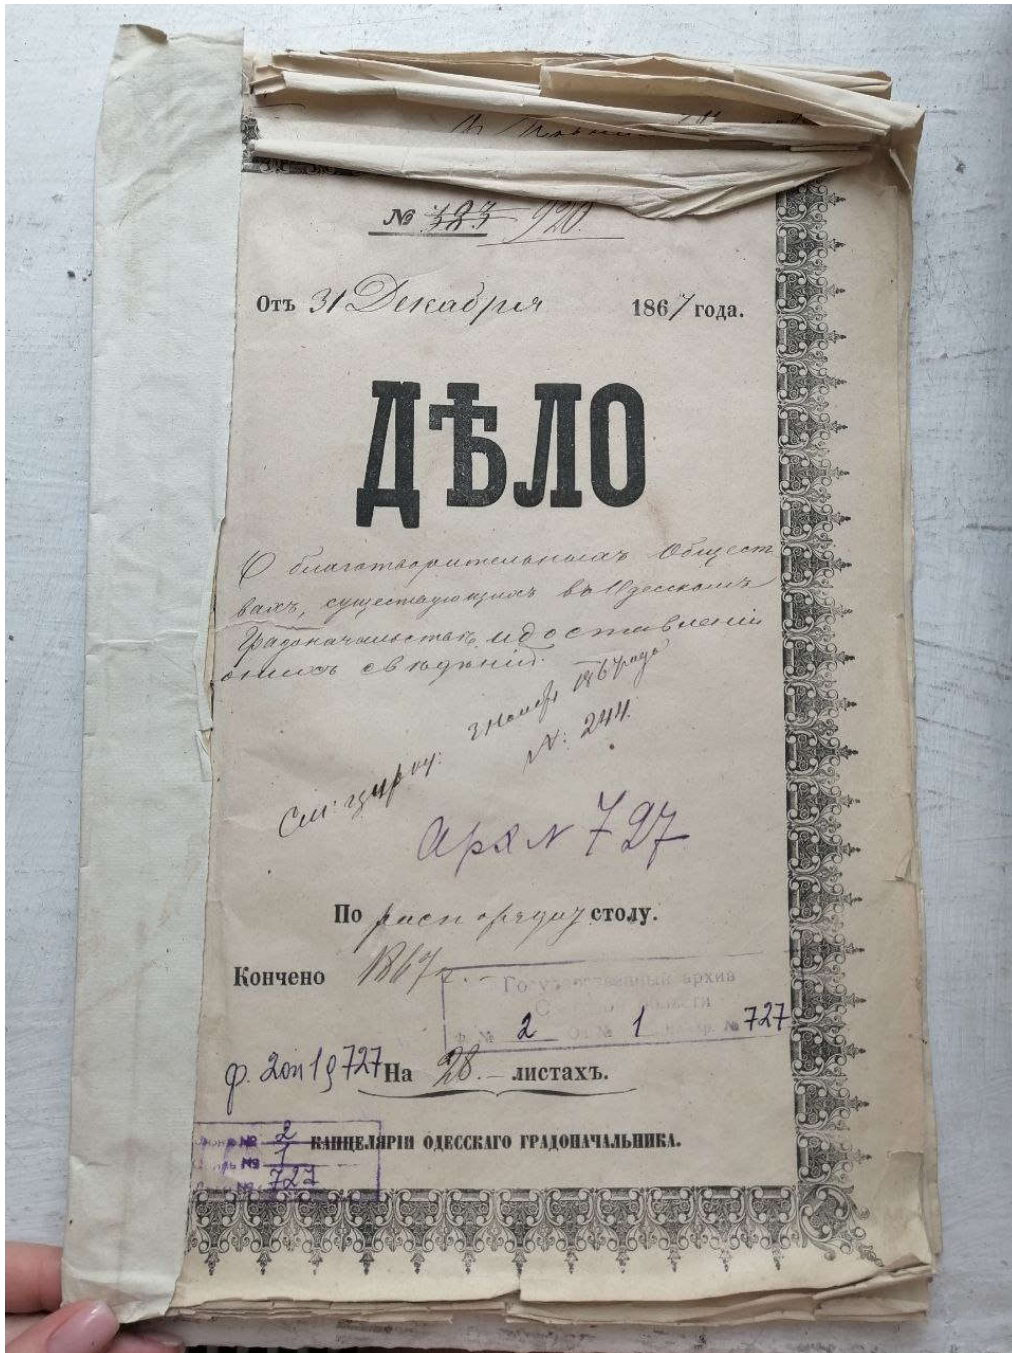 № 323 920.
Отъ 31 Декабря 1867 года.
ДѢЛО
О благотворительныхъ Общест
вахъ, существующихъ въ Одесскомъ
Градоначальствѣ, и доставленіи
о нихъ свѣдѣній.
См: цирку: 1867 года
N: 244.
Арх N 727
По распоряд столу.
Кончено 1867 г. –
Государственный архив
Одесской области
Ф. № 2 Оп. № 1 № 727
ф. 2 оп 1 д 727 На 28. – листахъ.
КАНЦЕЛЯРІИ ОДЕССКАГО ГРАДОНАЧАЛЬНИКА.
Фонд № 2
Опись № 1
№ 727